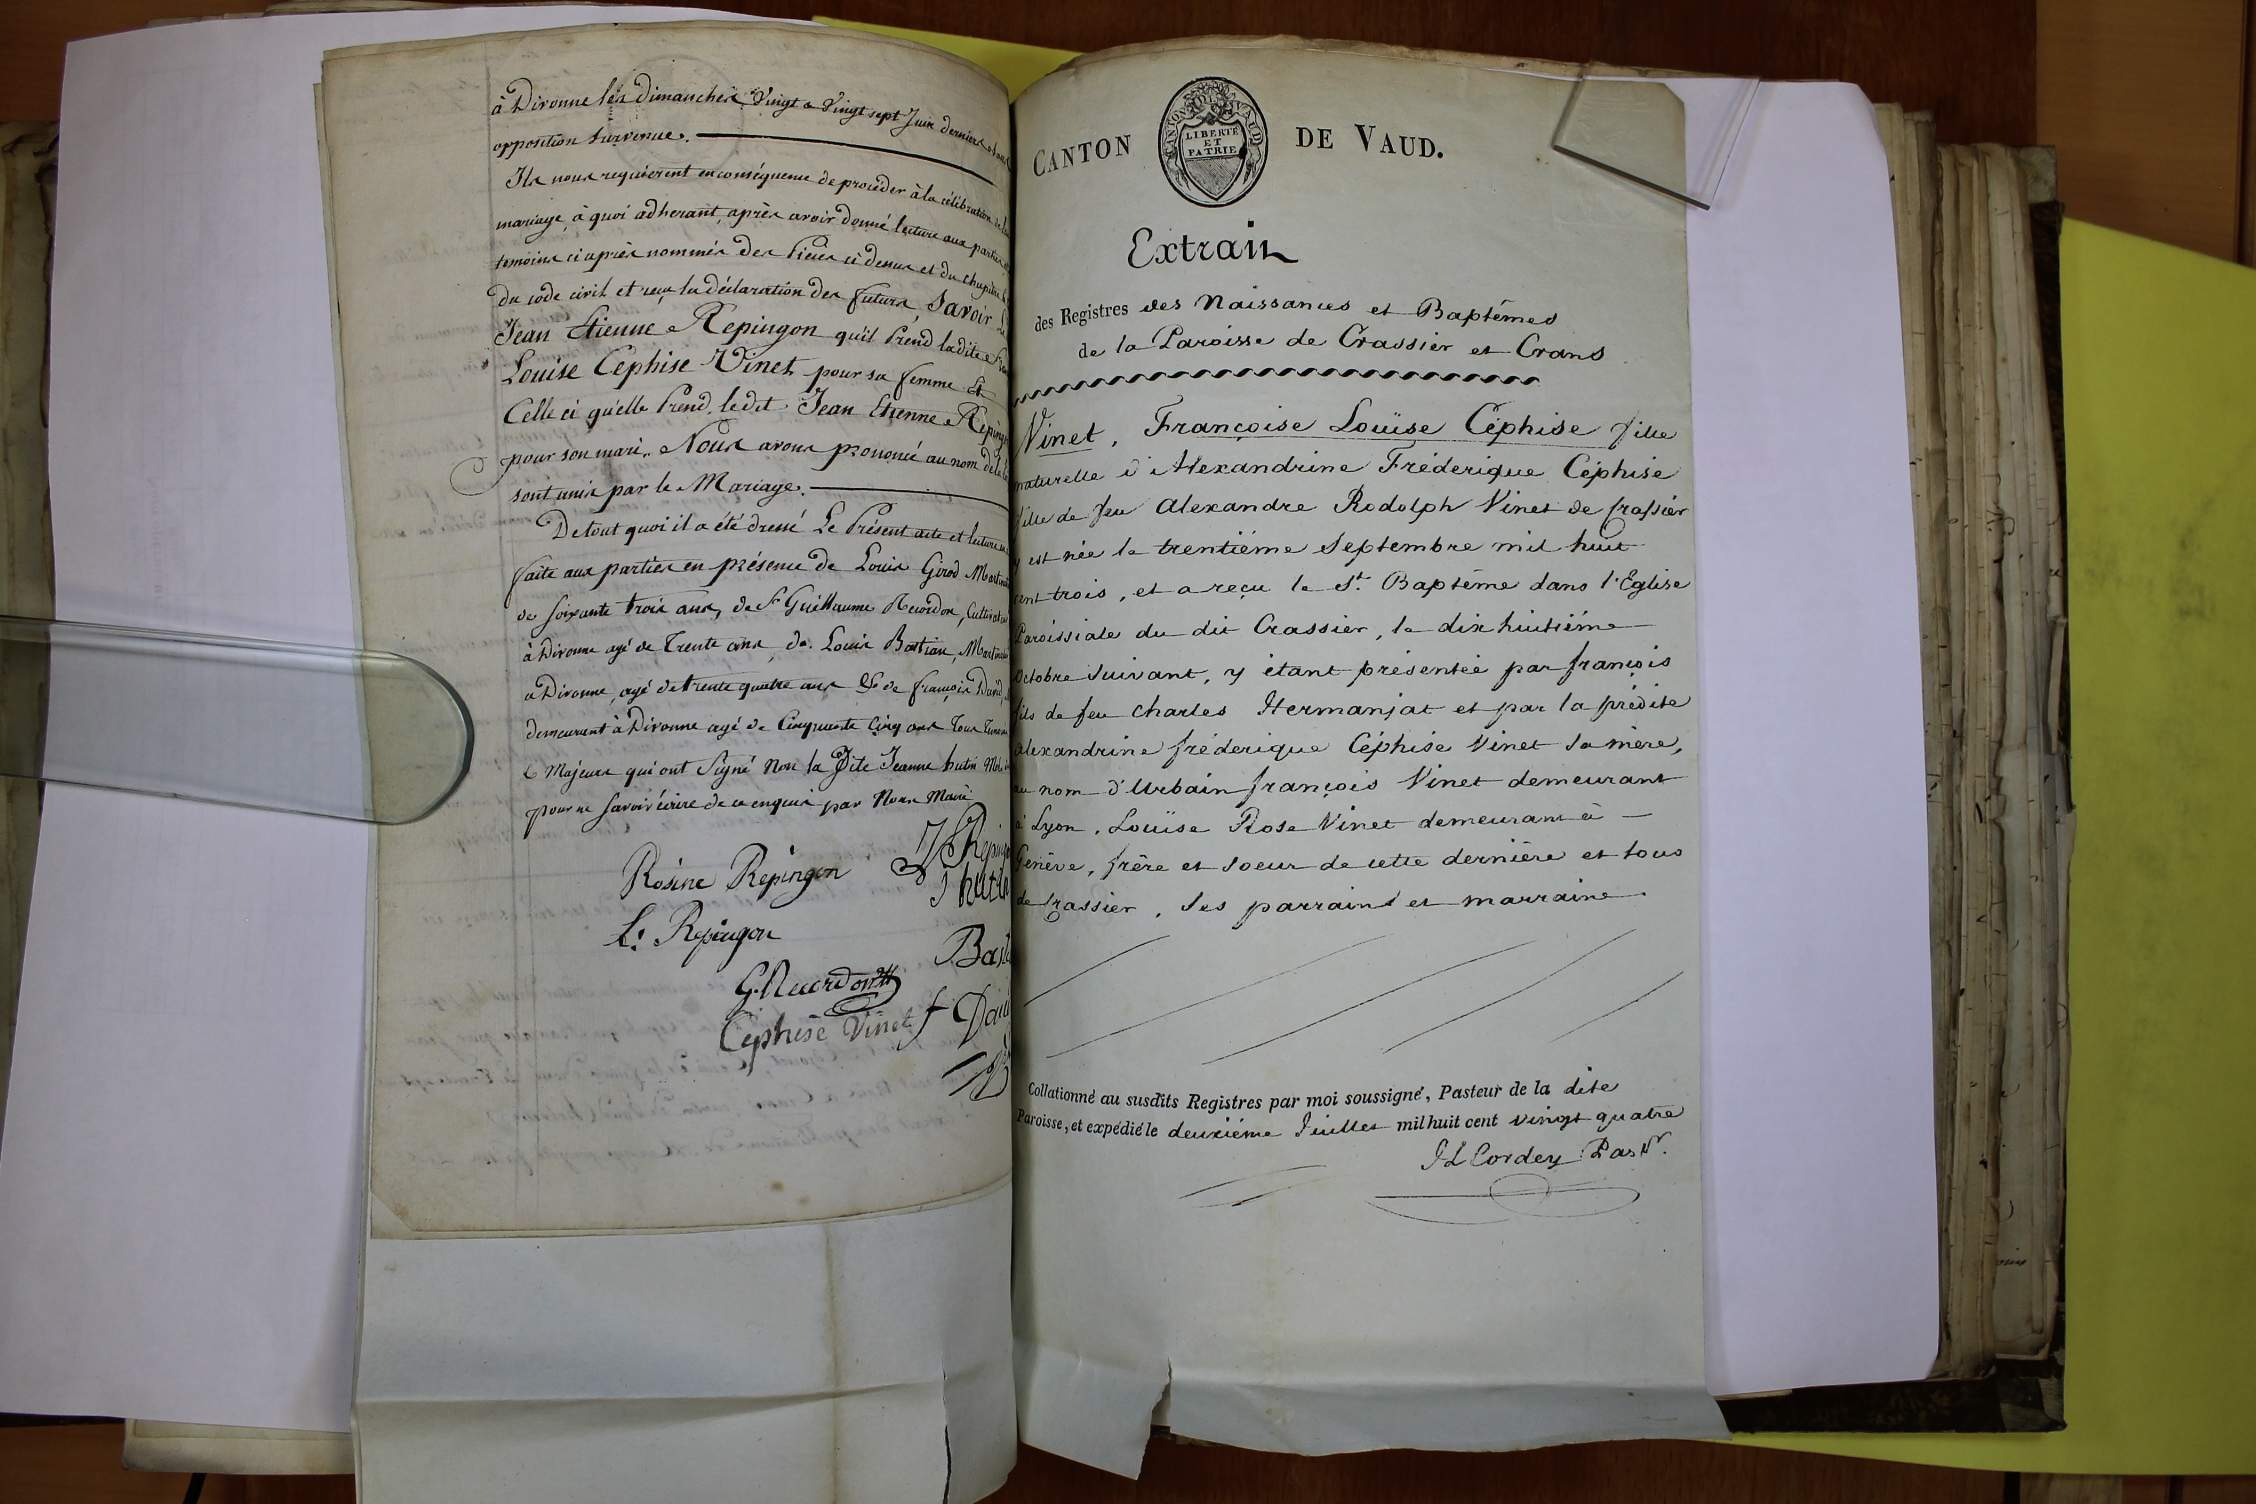 à Divonne les dimanches Vingt & Vingt sept Juin derniers
opposition survenue.
Ils nous requièrent en conséquence de procéder à la célébration
mariage, à quoi adherant, après avoir donné lecture aux parties
temoins ci après nommés des Pièces ci dessus et du Chapitre
du code civil et reçu la déclaration des futurs, Savoir
Jean Etienne Repingon qu'il Prend la dite
Louise Céphise Vinet pour sa femme Et
Celle ci qu'elle Prend le dit Jean Etienne
pour son mari. Nous avons prononcé au nom de la
sont unis par le Mariage.
De tout quoi il a été dressé Le Présent acte et lecture
faite aux parties en présence de Louis Girod
de soixante trois ans, de Sr Guillaume Recordon,
à Divonne agé de Trente ans, de Louis Bastian,
à Divonne, agé de trente quatre ans & de françois David,
demeurant à Divonne agé de Cinquante Cinq ans Tous
& Majeurs qui ont Signé Non la Dite Jeanne hutin
pour ne savoir écrire de ce enquis par Nous Maire
Rosine Repingon
L. Repingon
G. Recordon
Céphise Vinet
CANTON DE VAUD.
CANTON DE VAUD
LIBERTÉ
ET
PATRIE
Extrait
des Registres des Naissances et Baptêmes
de la Paroisse de Crassier et Crans
Vinet, Françoise Louïse Céphise fille
naturelle d'Alexandrine Fréderique Céphise
fille de feu Alexandre Rodolph Vinet de Crassier
y est née le trentiéme Septembre mil huit
cent trois, et a reçu le St. Baptême dans l'Eglise
Paroissiale du dit Crassier, le dix huitiéme
Octobre suivant, y étant présentée par françois
fils de feu Charles Hermanjat et par la prédite
Alexandrine fréderique Céphise Vinet sa mère,
au nom d'Urbain françois Vinet demeurant
à Lyon, Louïse Rose Vinet demeurant à
Genêve, frère et soeur de cette dernière et tous
de Crassier, ses parrains et marraine
Collationné au susdits Registres par moi soussigné, Pasteur de la dite
Paroisse, et expédié le deuxiéme Juillet mil huit cent vingt quatre
J L Cordey Pastr.